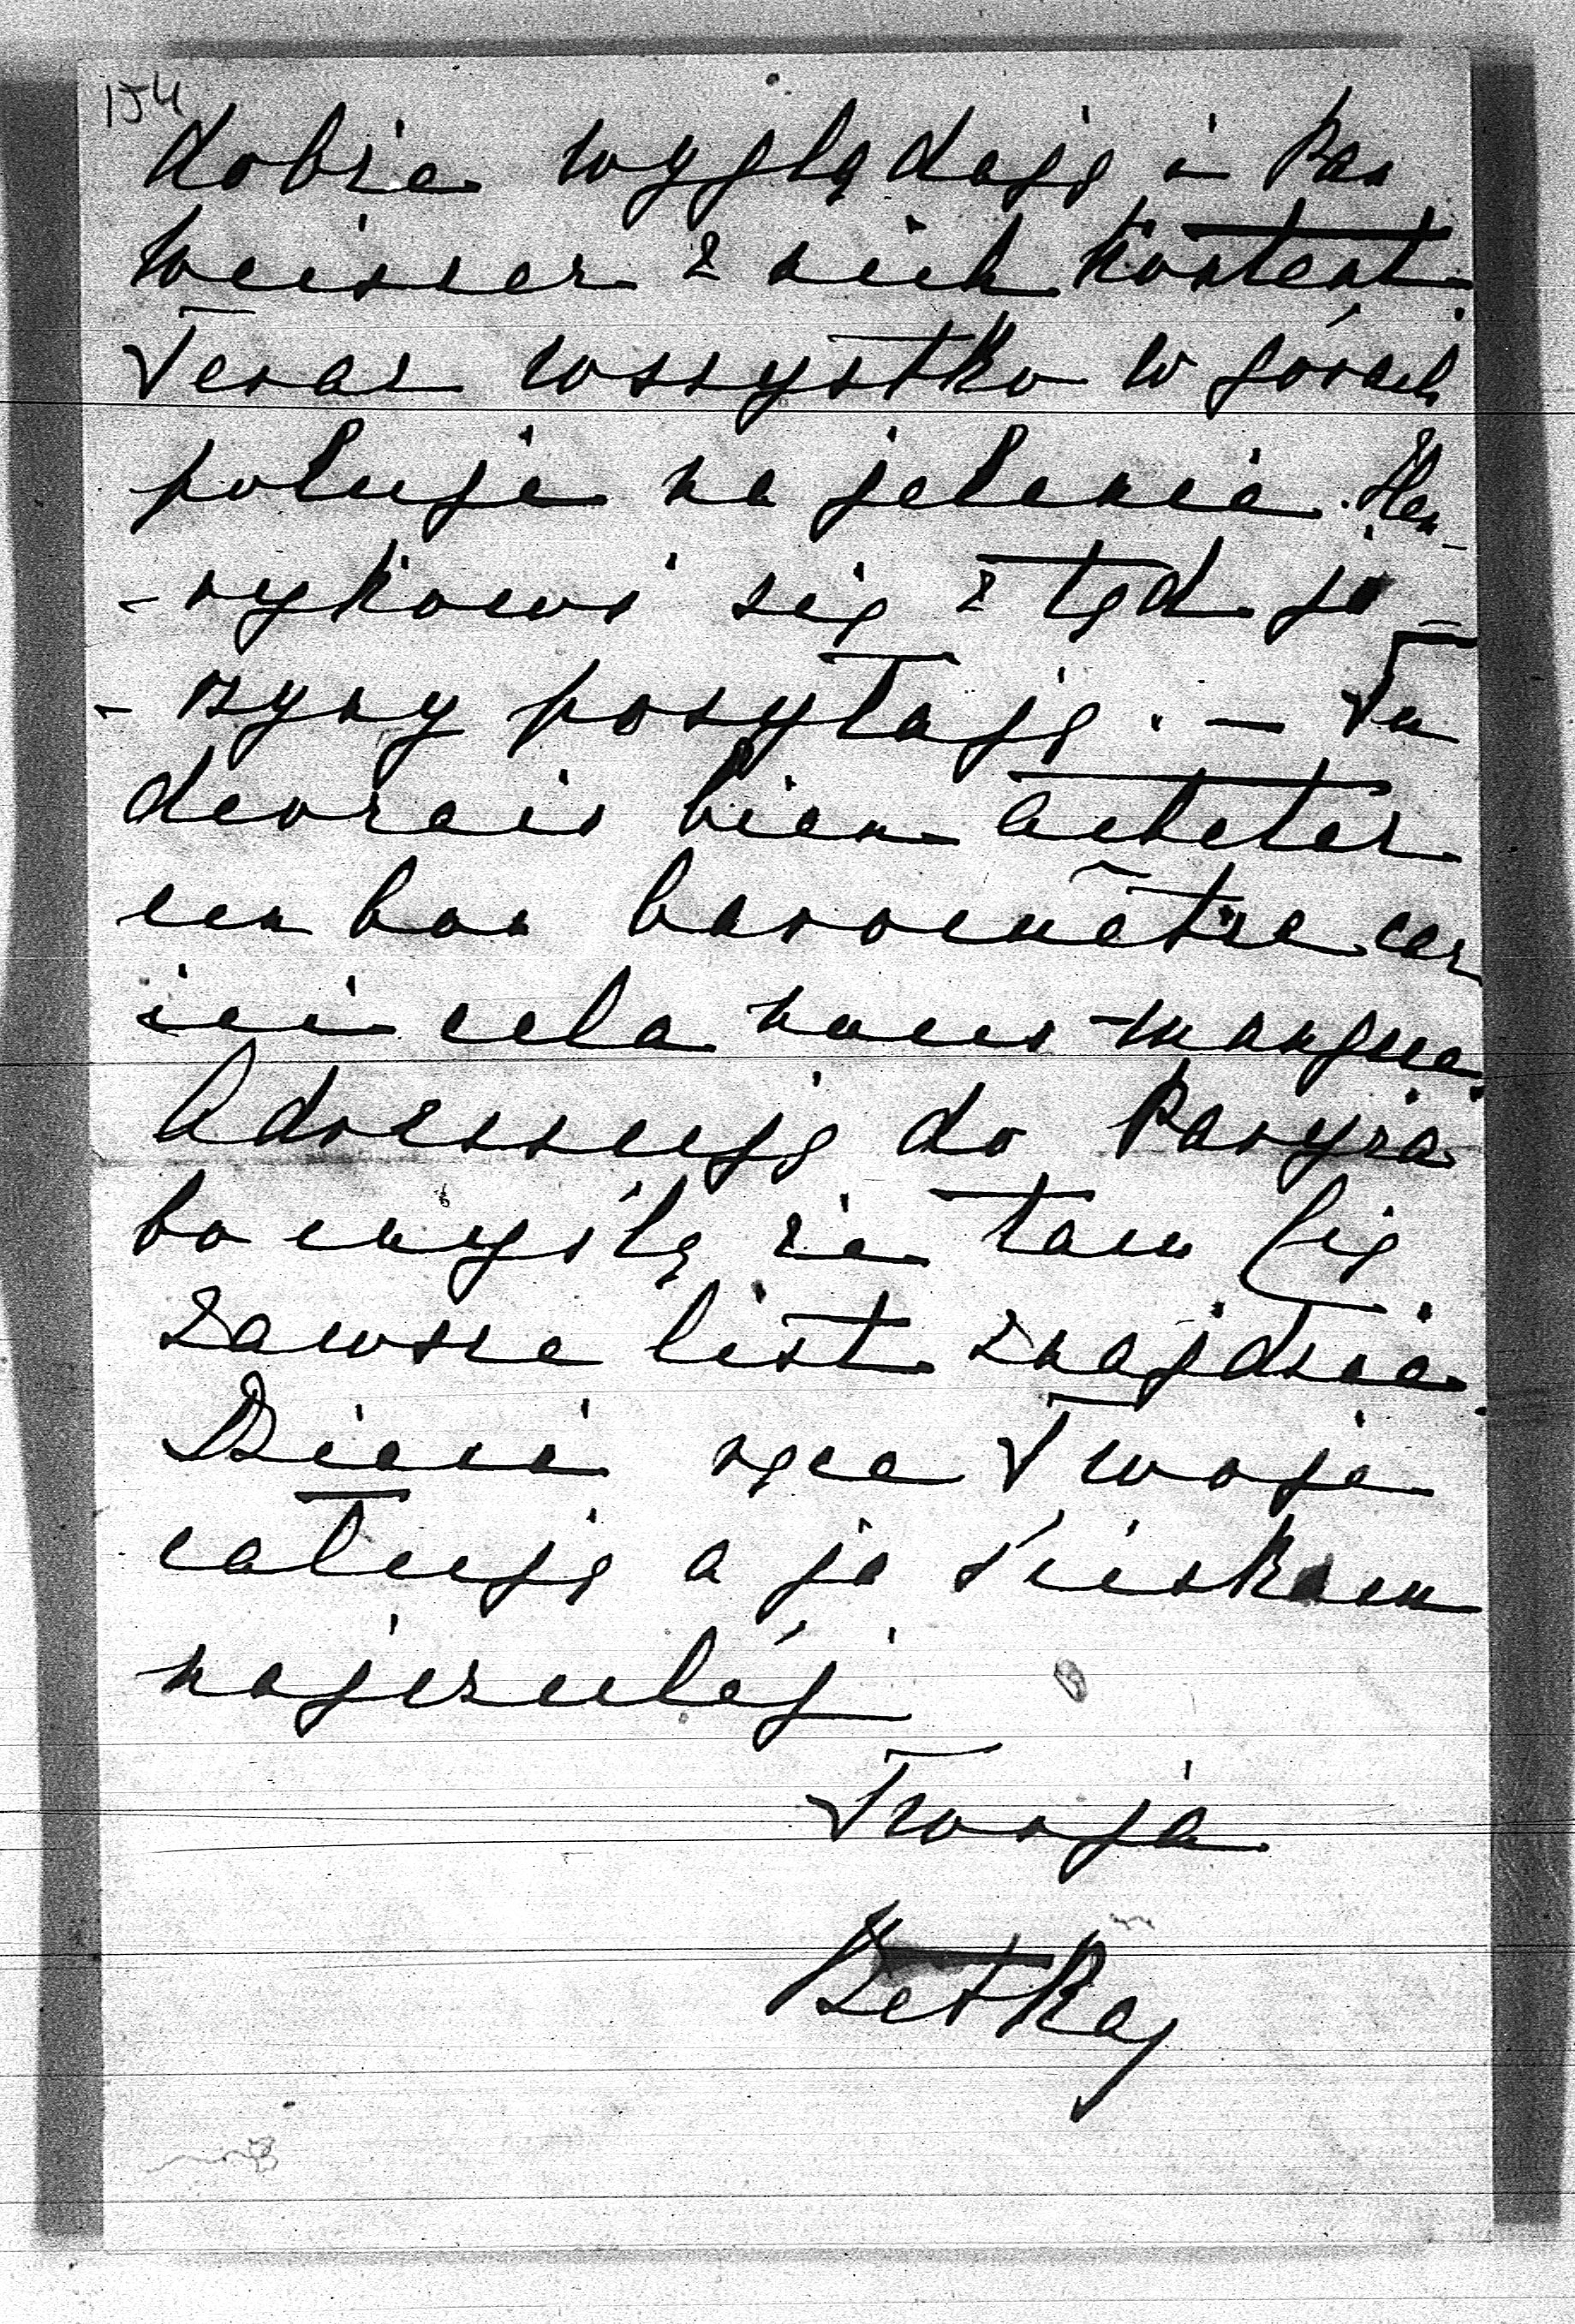 154
dobrze wyglądają i Pan
Weisser z nich kontent.
Teraz wszystko w górach
poluje na jelenie. Hen-
-rykowi się z tąd ja-
-rzyny posyłają. — Tu
devrais bien acheter
un bon baromètre car
ici cela nous manque.
Adressuję do Paryża
bo myślę że tam Cię
zawsze list znajdzie.
Dzieci ręce Twoje
całują a ja ściskam
najczulej
Twoja
Betka